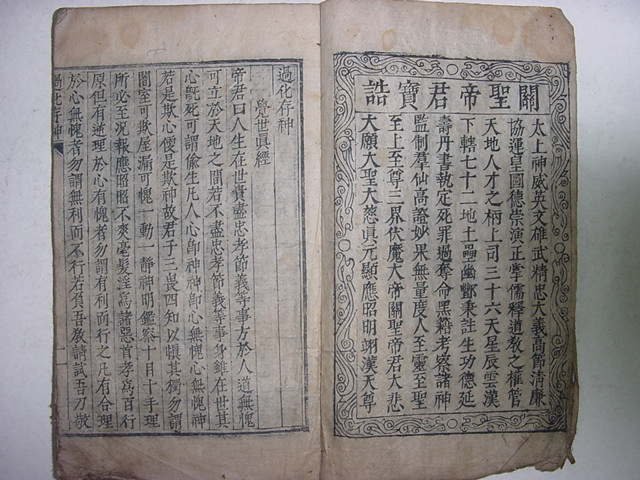 關聖帝君寶誥
太上神威英文雄武精忠大義高節清廉
協運皇圖德崇演正掌儒釋道教之權管
天地人才之柄上司三十六天星辰雲漢
下轄七十二地土壘幽酆秉註生功德延
壽丹書執定死罪過奪命黑籍考察諸神
監制羣仙高證妙果無量度人至靈至聖
至上至尊三界伏魔大帝關聖帝君大悲
大願大聖大慈眞元顯應昭明翊漢天尊
過化存神
覺世眞經
帝君曰人生在世貴盡忠孝節義等事方於人道無愧
可立於天地之間若不盡忠孝節義等事身雖在世其
心旣死可謂偷生凡人心卽神神卽心無愧心無愧神
若是欺心便是欺神故君子三畏四知以愼其獨勿謂
闇室可欺屋漏可愧一動一靜神明鑑察十目十手理
所必至況報應昭昭不爽毫髮淫爲諸惡首孝爲百行
原但有逆理於心有愧者勿謂有利而行之凡有合理
於心無愧者勿謂無利而不行若負吾敎請試吾刀
過化存神